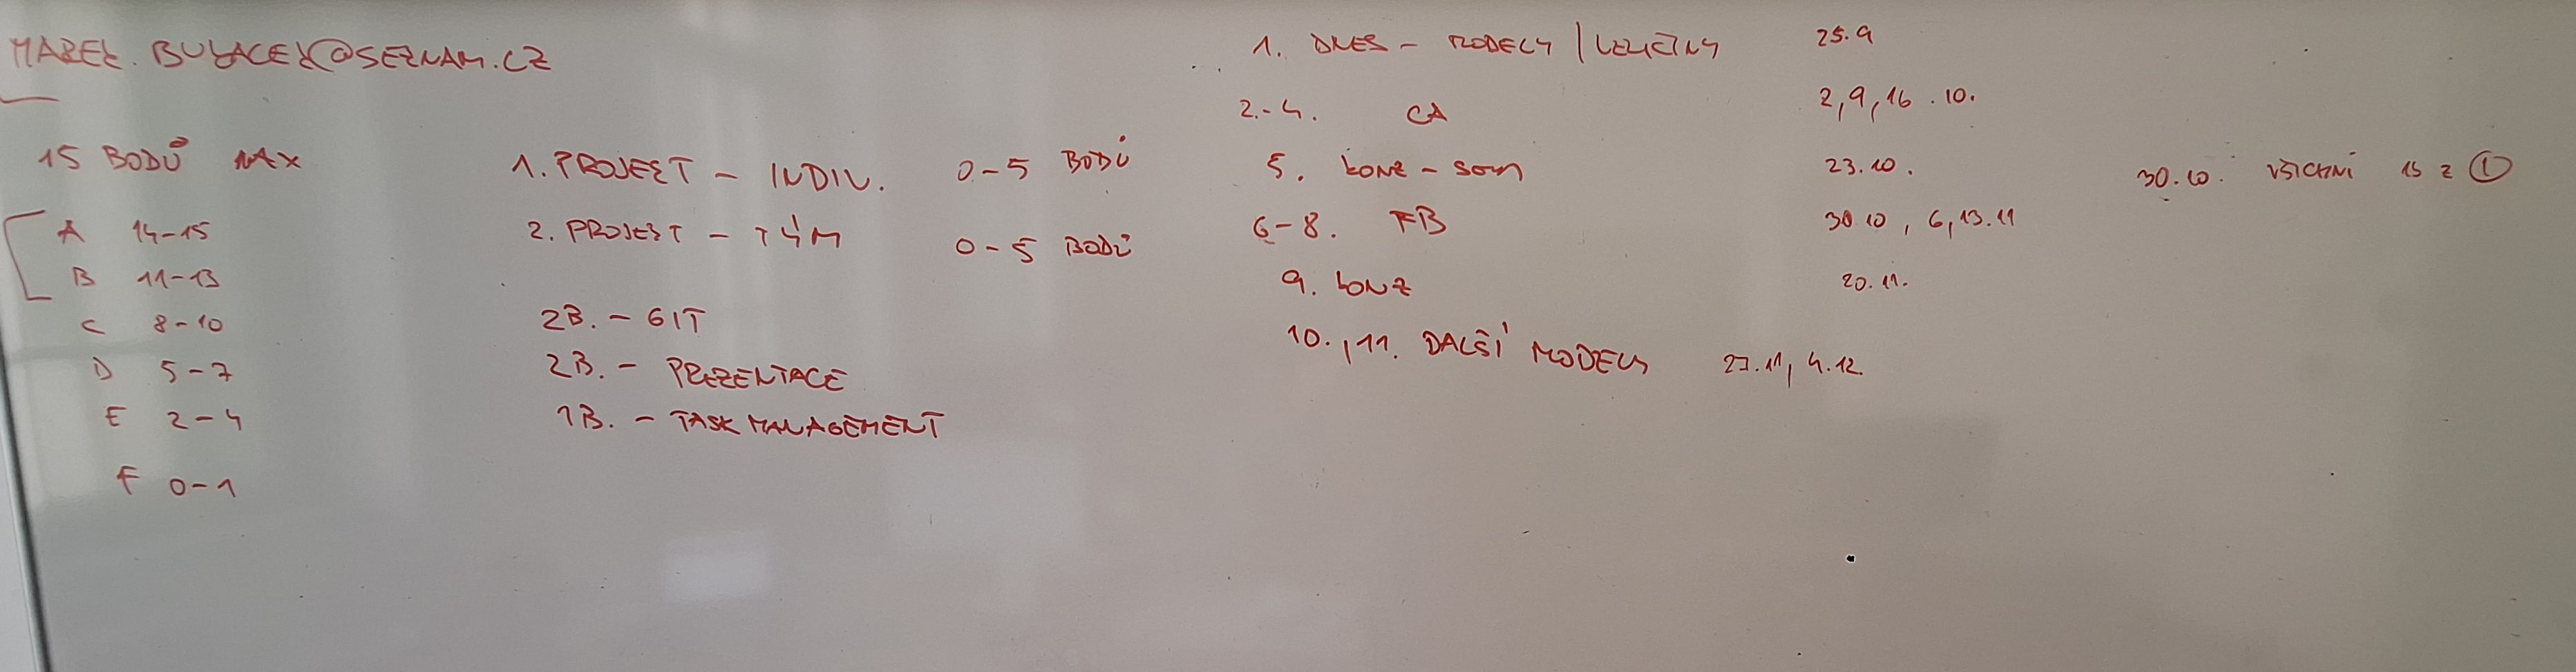 15 BODŮ MAX
A 14-15
B 11-13
C 8-10
D 5-7
E 2-4
F 0-1
1. PROJEKT - INDIV. 0-5 BODŮ
2. PROJEKT - TÝM 0-5 BODŮ
2B. - GIT
2B. - PREZENTACE
1B. - TASK MANAGEMENT
1. DNES - MODELY | 25.9
2.-4. CA 2,9,16.10.
5. KONZ - SEM 23.10.
6-8. FB 30 10, 6,13.11
9. KONZ 20.11.
10., 11. DALŠÍ MODELY 27.11, 4.12.
30.10. VŠICHNI 15 z 1